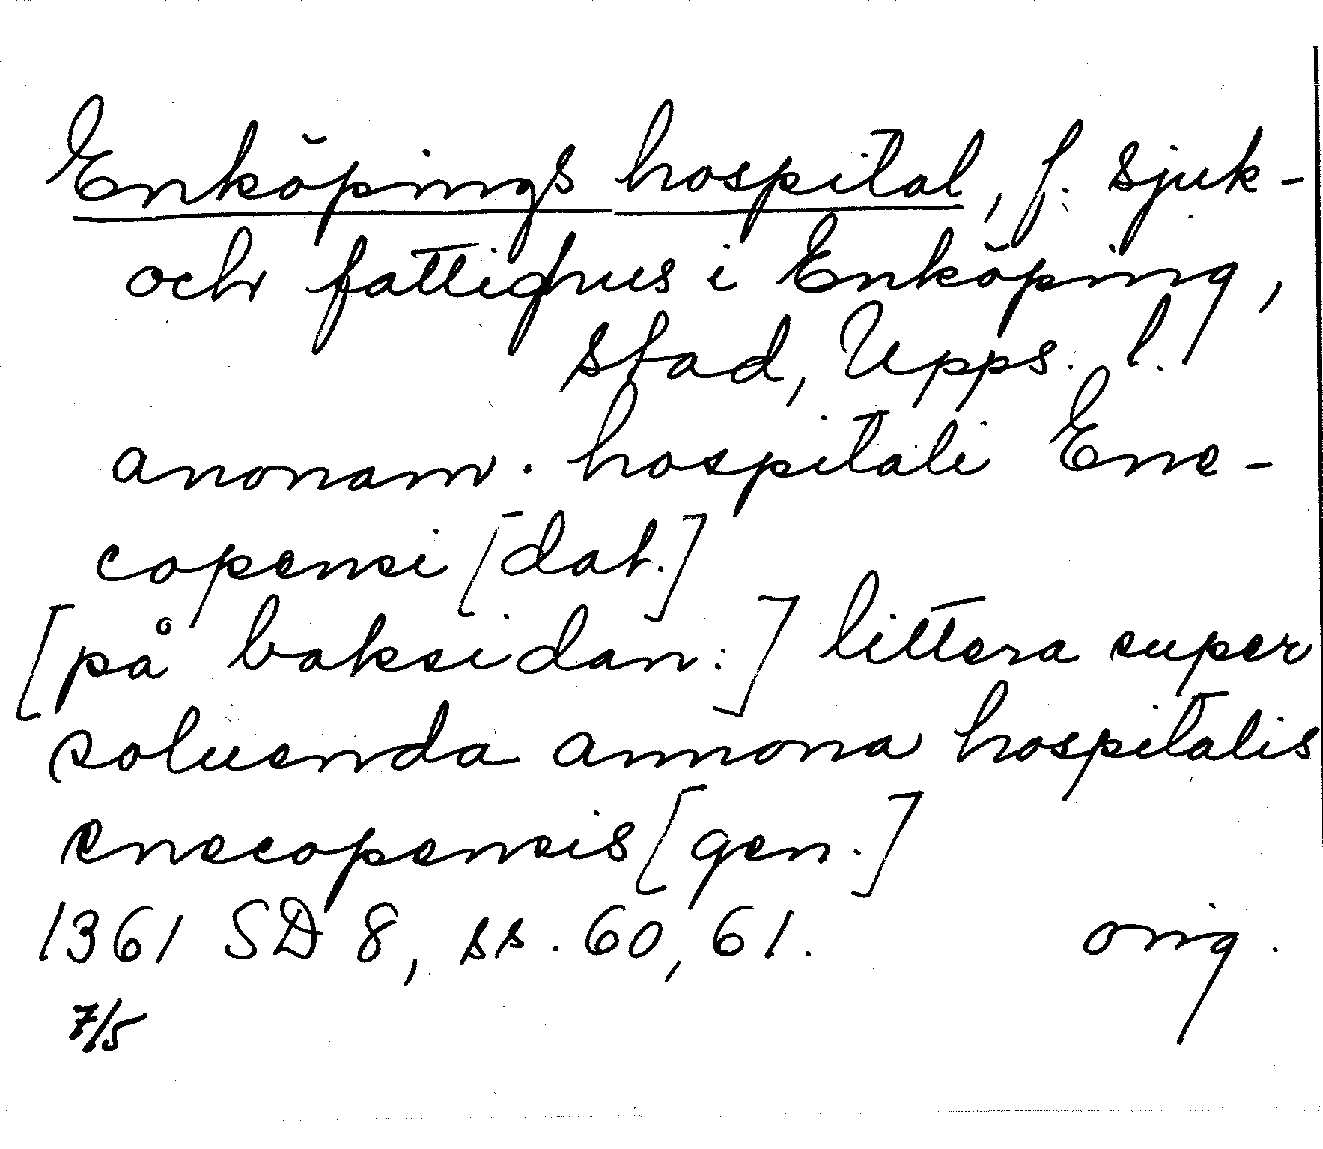 Enköpings hospital, f. sjuk-
och fattighus i Enköping,
stad, Upps. l.
anonam . hospitali Ene-
copensi [dat.]
[på baksidan:] littera super
soluenda annona hospitalis
enecopensis [gen.]
1361 SD 8, ss. 60, 61. orig.
7/5